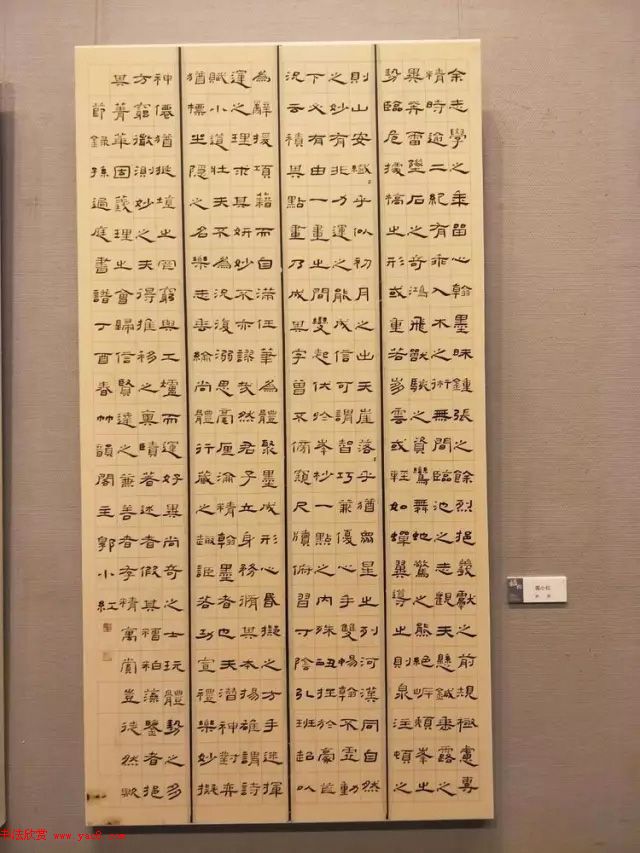 余志學之年留心翰墨味鍾張之餘烈挹羲獻之前規極慮專
精時逾二紀有乖入木之術無間臨池之志觀夫懸鍼垂露之
異奔雷墜石之奇鴻飛獸駭之資鸞舞蛇驚之態絕岸頹峯之
勢臨危據槁之形或重若崩雲或輕如蟬翼導之則泉注頓之
則山安纖〻乎似初月之出天崖落〻乎猶眾星之列河漢同自然
之妙有非力運之能成信可謂智巧兼優心手雙暢翰不虛動
下必有由一畫之間變起伏於峯杪一點之內殊衄挫於豪芒
況云積其點畫乃成其字曾不傍窺尺牘俯習寸陰引班超以
為辭援項籍而自滿任筆為體聚墨成形心昏擬之方手迷揮
運之理求其妍妙不亦謬哉然君子立身務脩其本揚雄謂詩
賦小道壯夫不為況復溺思毫厘淪精翰墨者也夫潛神對弈
猶標坐隱之名樂志垂綸尚體行藏之趣詎若功宣禮樂妙擬
神僊猶埏埴之罔窮與工爐而運好異尚奇之士玩體勢之多
方窮微測妙之夫得推移之奧賾著述者假其糟粕藻鑒者挹
其菁華固義理之會歸信賢達之兼善者存精寓賞豈徒然歟
節錄孫過庭書譜丁酉春竹韻閣主郭小紅
书法欣赏 www.yac8.com